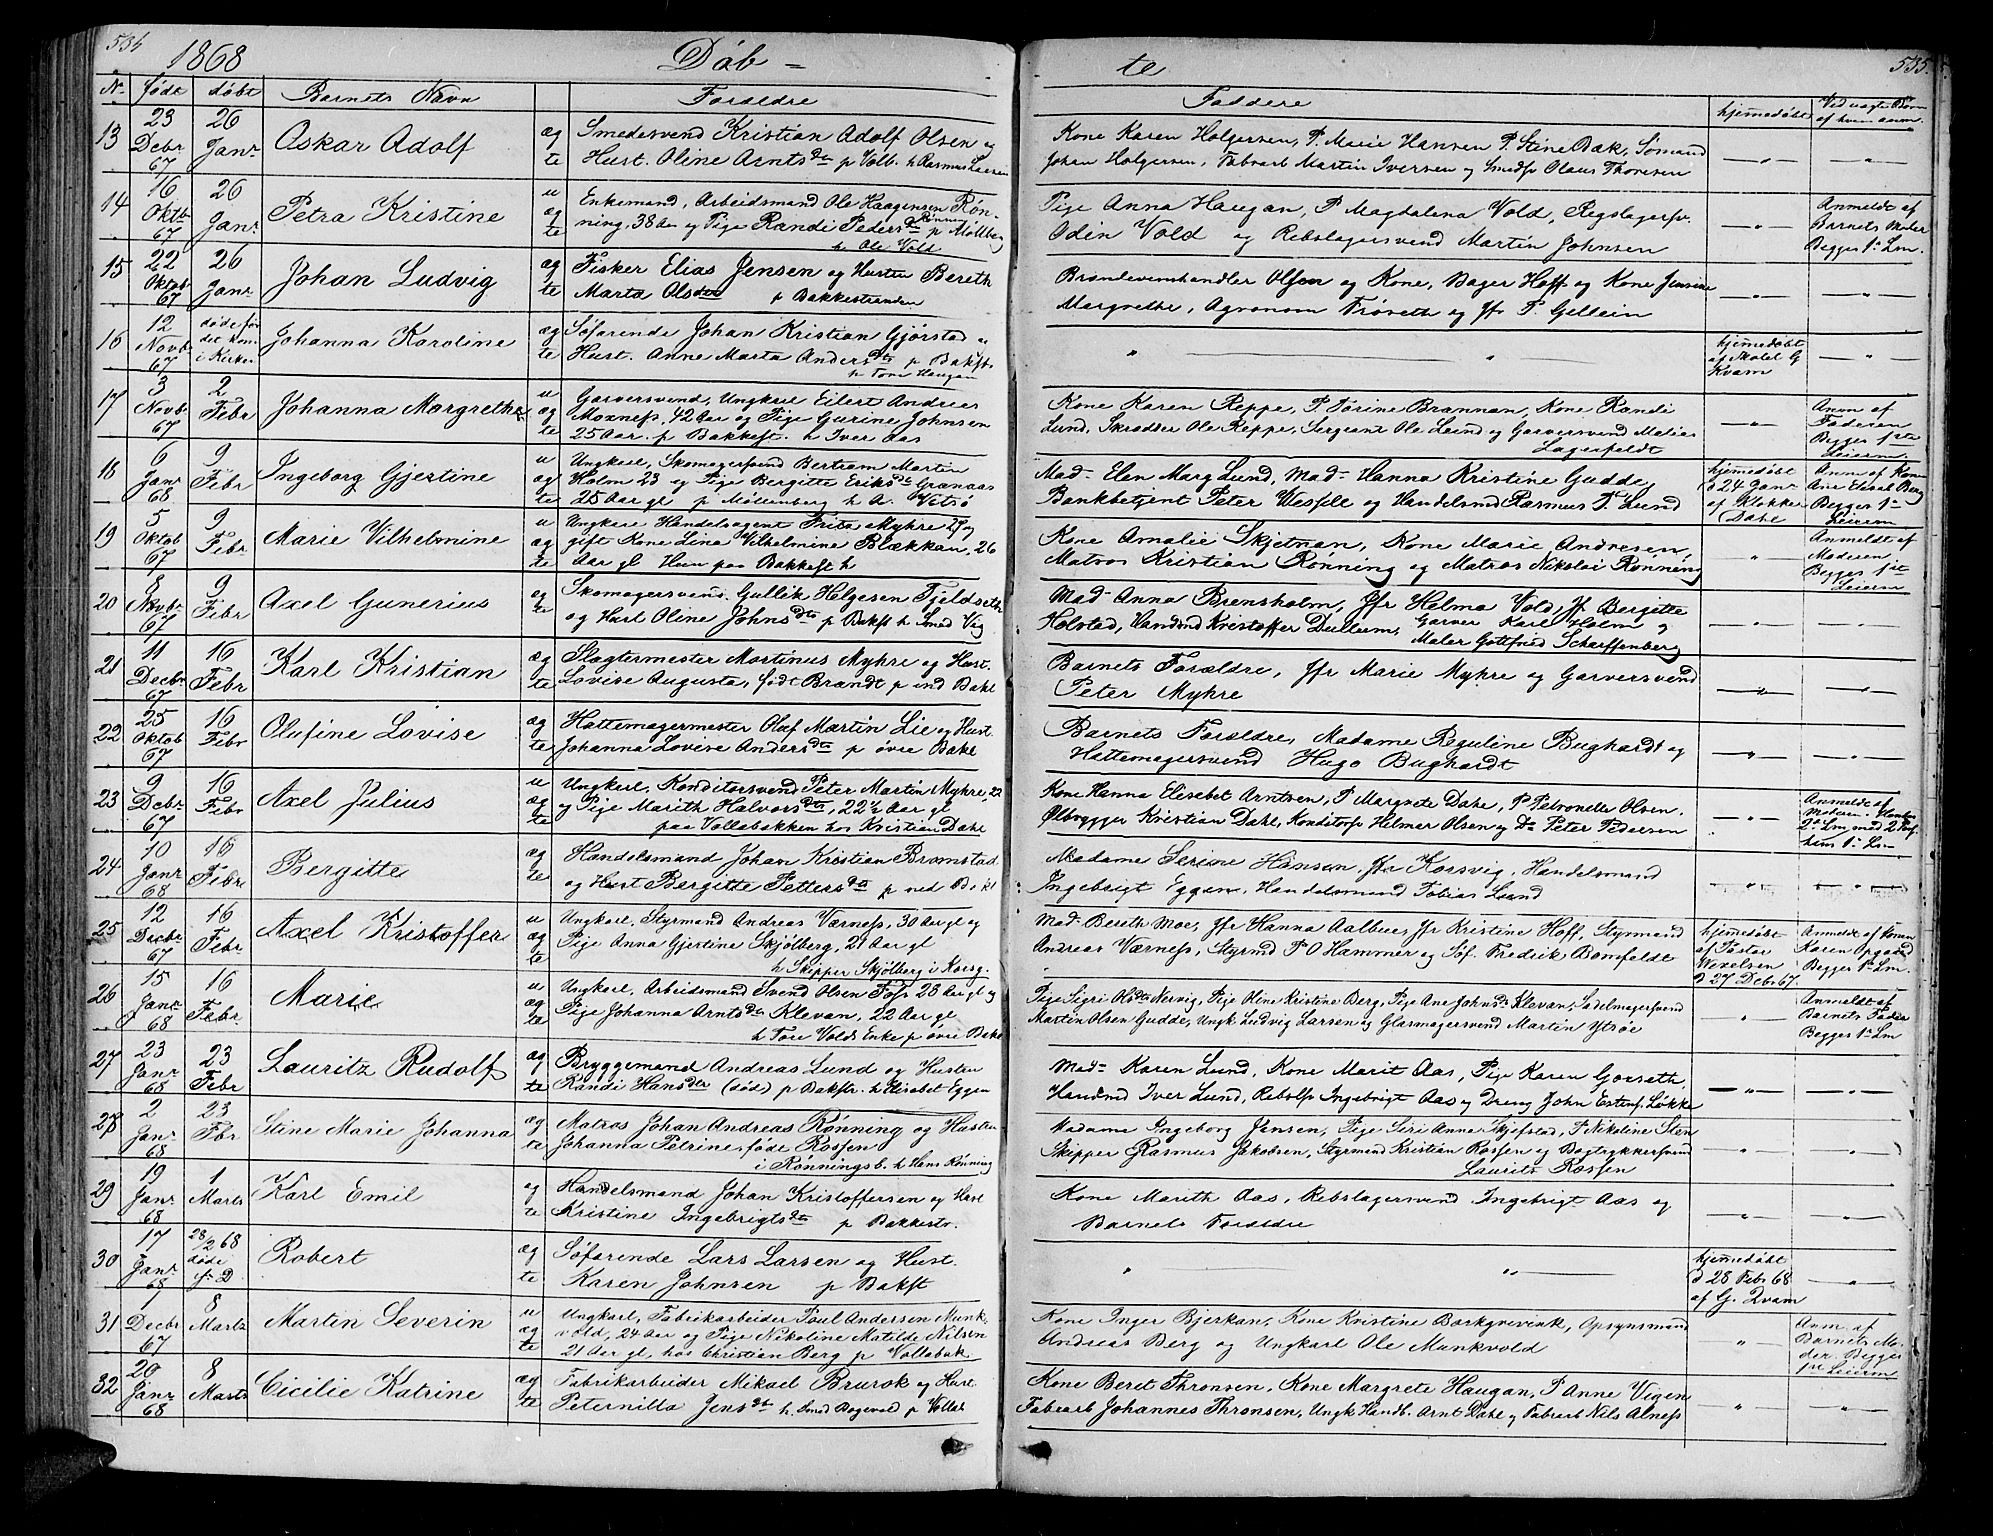 534
1868
Döb =
No födt döbt Barnets Navn Forældre
13 23 Decbr 67 26 Janr Oskar Adolf ægte
Smedesvend Kristian Adolf Olsen og
Hust. Oline Arntsdtr p Volb. h Rasmus Larsen
14 16 Oktb 67 26 Janr Petra Kristine uægte
Enkemand, Arbeidsmand Ole Haagensen Røn-
ning, 38 Aar og Pige Randi Pedersdtr Rønning p Møllbg
h Ole Vold
15 22 Oktob 67 26 Janr Johan Ludvig ægte
Fisker Elias Jensen og Husten Bereth
Marta Olsdtr p Bakkestranden
16 12 Novb 67 døde før det kom i Kirken Johanna Karoline ægte
Søfarende Johan Kristian Gjørstad "
Hust. Anne Marta Andersdtr p Bakft.
h Tore Haugan
17 3 Novb 67 2 Febr Johanna Margrethe uægte
Garversvend, Ungkrl Eilert Andreas
Moxness, 42 Aar og Pige Gurine Johnsen
25 Aar. p Bakkeft. h Iver Aas
18 6 Janr 68 9 Febr Ingeborg Gjertine uægte
Ungkarl, Skomagersvend Bertram Martin
Holm 23 og Pige Bergitte Eriksdtr Granaas
25 Aar gl p Möllenberg h A. Vetsö
19 5 Oktob 67 9 Febr Marie Vilhelmine uægte
Ungkrl Handelsagent Fritz Myhre 29 og
gift Kone Lina Vilhelmine Blækkan, 26
Aar gl Hun paa Bakkeft h
20 8 Novbr 67 9 Febr Axel Gunerius ægte
Skomagersvend Gullik Helgesen Fjeldseth
og Hust Oline Johnsdtr p Bakft h Smed Vig
21 11 Decbr 67 16 Febr Karl Kristian ægte
Slagtermester Martinus Myhre og Hust.
Lovise Augusta, født Brandt p ind Bakl
22 25 Oktob 67 16 Febr Olufine Lovise ægte
Hattemagermester Olaf Martin Lie og Hust.
Johanna Lovise Andersdtr p øvre Bakl
23 9 Debr 67 16 Febr Axel Julius uægte
Ungkarl, Konditorsvend Peter Martin Myhre, 22
og Pige Marith Halvorsdtr, 22½ Aar gl
paa Vollabakken hos Kristian Dahl
24 10 Janr 68 16 Febr Bergitte ægte
Handelsmand Johan Kristian Bromstad
og Hust Bergitte Pettersdtr p ned B.kl
25 12 Decbr 67 16 Febr Axel Kristoffer uægte
Ungkarl, Styrmand Andreas Værness, 30 Aar gl og
Pige Anna Gjertine Skjølberg, 21 Aar gl
h Skipper Skjølberg i Korsg.
26 15 Janr 68 16 Febr Marie uægte
Ungkarl, Arbeidsmand Svend Olsen Foss 28 Aar gl og
Pige Johanna Arntsdtr Klevan, 22 Aar gl
h Tore Volds Enke p øvre Bakl
27 23 Janr 68 23 Febr Lauritz Rudolf ægte
Bryggemand Andreas Lund og Husten
Randi Hansdtr (död) p Bakftr. h Elisabet Eggen
28 2 Janr 68 23 Fbr Stine Marie Johanna ægte
Matros Johan Andreas Rønning og Husten
Johanna Petrine, føde Rossen
i Rønningsb. h Hans Rønning
29 19 Janr 68 1 Marts Karl Emil ægte
Handelsmand Johan Kristoffersen og Hust
Kristine Ingebrigtsdtr p Bakkestr.
30 17 Janr 68 28/2 68 døde f D Robert ægte
Søfarende Lars Larsen og Hust.
Karen Johnsen p Bakft
31 1 Decbr 67 8 Marts Martin Severin uægte
Ungkarl, Fabrikarbeider Paul Andersen Munk-
vold, 24 Aar og Pige Nikoline Matilde Nilsen
21 Aar gl, hos Christian Berg p Vollabak
32 20 Janr 68 8 Marts Cicilie Katrine ægte
Fabrikarbeider Mikael Brurok og Hust.
Peternilla Jensdtr h. Smed Rogevold p Vollab
te
535
Faddere hjemmedøbt Ved uægte Børn af hvem anm.
Kone Karen Holgersen, P. Marie Hansen P. Stine Bak, Sömand
Johan Holgersen, Fabrarb Martin Iversen og Smedsv Olaus Thoresen — " — — " —
Pige Anna Haugan, P Magdalena Vold, Rebslagersv.
Oden Vold og Rebslagersvend Martin Johnsen — " — Anmeldt af Barnets Moder Begges 1ste Lm.
Brændevinshandler Olsen og Kone, Bager Hoff og Kone Jensine
Margrethe, Agronom Trøveth og Jfr P. Gellein — " — — " —
" — " hjemmedøbt af Skolel G Kvam — " —
Kone Karen Reppe, P. Torine Brannan, Kone Randi
Lund, Skrædder Ole Reppe, Sergeant Ole Lund og Garversvend Matias
Lagerfeldt — " — Anm af Faderen Begges 1ste Leierm.
Mad- Elen Marg Lund, Mad- Hanna Kristine Gudde,
Bankbetjent Peter Wesfill og Handelsmd Rasmus T. Lund hjemmedøbt d 24 Janr af Klokker Dahl Anm af Kone Ane Elisab Berg Begges 1ste Leierm
Kone Amalie Skjetnan, Kone Marie Andresen,
Matros Kristian Rønning og Matros Nikolai Rønning " Anmeldt af Moderen Begges 1ste Leierm
Mad- Anna Brensholm, Jfr Helma Vold, Jf Bergitte
Holstad, Handsmd Kristoffer Dullum, Garver Karl Holm og
Maler Gottfried Scharffenberg — " — — " —
Barnets Forældre, Jfr Marie Myhre og Garversvend
Peter Myhre — " — — " —
Barnets Forældre, Madame Reguline Bughardt og
Hattemagersvend Hugo Bughardt — " — — " —
Kone Hanna Elisebet Arntsen, P Margrete Dahl, P Petronelle Olsen,
Ølbrygger Kristian Dahl, Konditorsv Helmer Olsen og Do Peter Pedersen — " — Anmeldt af Moderen. Hendes 2det Lm med 2 Personer hans 1ste Lm
Madame Serine Hansen, Jfr Korsvig, Handelsmand
Ingebrigt Eggen, Handelsmand Tobias Lund — " — — " —
Mad- Bereth Moe, Jfr Hanna Aalberg, Jfr Kristine Hoff, Styrmand
Andreas Værness, Styrmd P O Hammer og Söf. Fredrik Bomfeldt hjemmedøbt af Pastor Wexelsen d 27 Debr 67. Anmeldt af Konen Karen Opgaard Begges 1ste Lm.
Pige Sigri Olsdtr Nervig, Pige Oline Kristine Berg, Pige Ane Johnsdtr Klevan, Sadelmagersvend
Martin Olsen Gudde, Ungk Ludvig Larsen og Glasmagersvend Martin Ytröe " Anmeldt af Barnets Fader Begges 1ste Lm
Mad- Karen Lund, Kone Marit Aas, Pige Karen Gorseth,
Handmd Iver Lund, Rebslsv Ingebrigt Aas og Dreng John Estens. Løkke — " — — " —
Madame Ingeborg Jensen, Pige Seri Anna Skjefstad, P Nikoline Sten
Skipper Rasmus Jakobsen, Styrmand Kristian Rossen og Bogtrykkersvend
Laurits Rossen " — " —
Kone Marith Aas, Rebslagersvend Ingebrigt Aas og
Barnets Forældre — " — — " —
" — " hjemmedøbt d 28 Febr 68 af G. Qvam — " —
Kone Inger Bjerkan, Kone Kristine Borkgrevink, Opsynsmand
Andreas Berg og Ungkarl Ole Munkvold " Anm. af Barnets Moder. Begges 1ste Leierm
Kone Beret Thronsen, Kone Margrete Haugan, P Anne Vigen
Fabrarb Johannes Thronsen, Ungk Handb. Arnt Dahl og Fabrarb Nils Alness " — " —